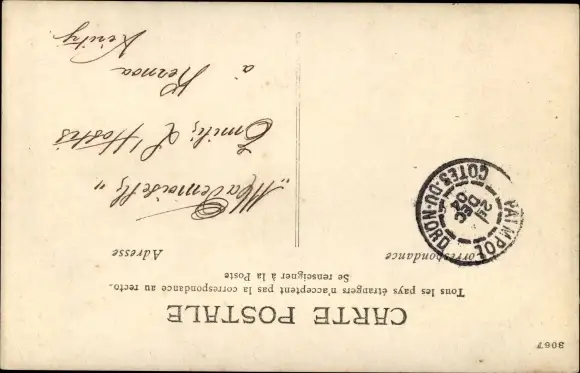 CARTE POSTALE
Tous les pays étrangers n'acceptent pas la correspondance au recto.
Se renseigner à la Poste
Correspondance
Adresse
PAIMPOL
COTES-DU-NORD
"Mademoiselle"
Emilie L'Hostis
à Kernoa
Kérity
3067